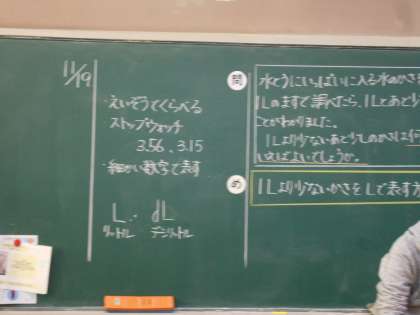 11/19
・えいぞうでくらべる
ストップウォッチ
3.56 、 3.15
・細かい数字で表す
L ・ dL
リットル デシリットル
問
水とうにいっぱいに入る水のかさを
1Lのますで調べたら、1Lとあと少
ことがわかりました。
1Lより少ないあと少しのかさは
いえばよいでしょうか。
め
1Lより少ないかさをLで表す方